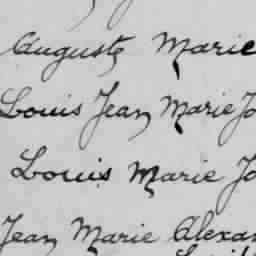 Auguste Marie
Louis Jean Marie Jo
Louis Marie Jo
Jean Marie Alexan